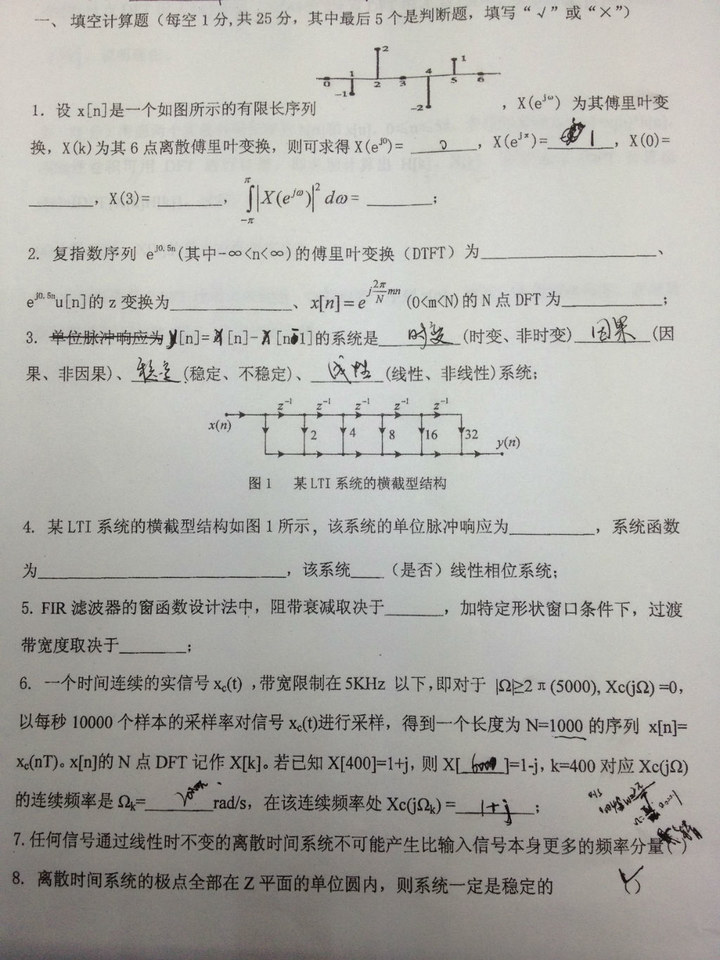 一、填空计算题（每空1分,共25分，其中最后5个是判断题，填写“√”或“×”）
0 1 2 3 4 5 6
2 1 -1 -2
1. 设 x[n]是一个如图所示的有限长序列 ，X(e^{jω}) 为其傅里叶变
换，X(k)为其6点离散傅里叶变换，则可求得X(e^{j0})= 0 ，X(e^{jπ})= 1 ，X(0)=
______，X(3)= ______， ∫_{-π}^{π}|X(e^{jω})|^2 dω= ______；
2. 复指数序列 e^{j0.5n}(其中-∞<n<∞)的傅里叶变换（DTFT）为______、
e^{j0.5n}u[n]的z变换为______、x[n]=e^{j\frac{2π}{N}mn}(0<m<N)的N点DFT为______；
3. 单位脉冲响应为 y[n]=x[n]-x[n-1]的系统是 时变 (时变、非时变) 因果 (因
果、非因果)、 稳定 (稳定、不稳定)、 线性 (线性、非线性)系统；
z^{-1} z^{-1} z^{-1} z^{-1} z^{-1}
x(n) 2 4 8 16 32 y(n)
图1 某LTI系统的横截型结构
4. 某LTI系统的横截型结构如图1所示，该系统的单位脉冲响应为______，系统函数
为______，该系统____（是否）线性相位系统；
5. FIR滤波器的窗函数设计法中，阻带衰减取决于______，加特定形状窗口条件下，过渡
带宽度取决于______；
6. 一个时间连续的实信号x_c(t)，带宽限制在5KHz 以下，即对于 |Ω|≥2π(5000), Xc(jΩ)=0，
以每秒10000个样本的采样率对信号x_c(t)进行采样，得到一个长度为N=1000的序列 x[n]=
x_c(nT)。x[n]的N点DFT记作X[k]。若已知X[400]=1+j，则X[ 600 ]=1-j，k=400对应Xc(jΩ)
的连续频率是Ω_k=______rad/s，在该连续频率处Xc(jΩ_k)= 1+j ；
7.任何信号通过线性时不变的离散时间系统不可能产生比输入信号本身更多的频率分量( )
8. 离散时间系统的极点全部在Z平面的单位圆内，则系统一定是稳定的 ( )